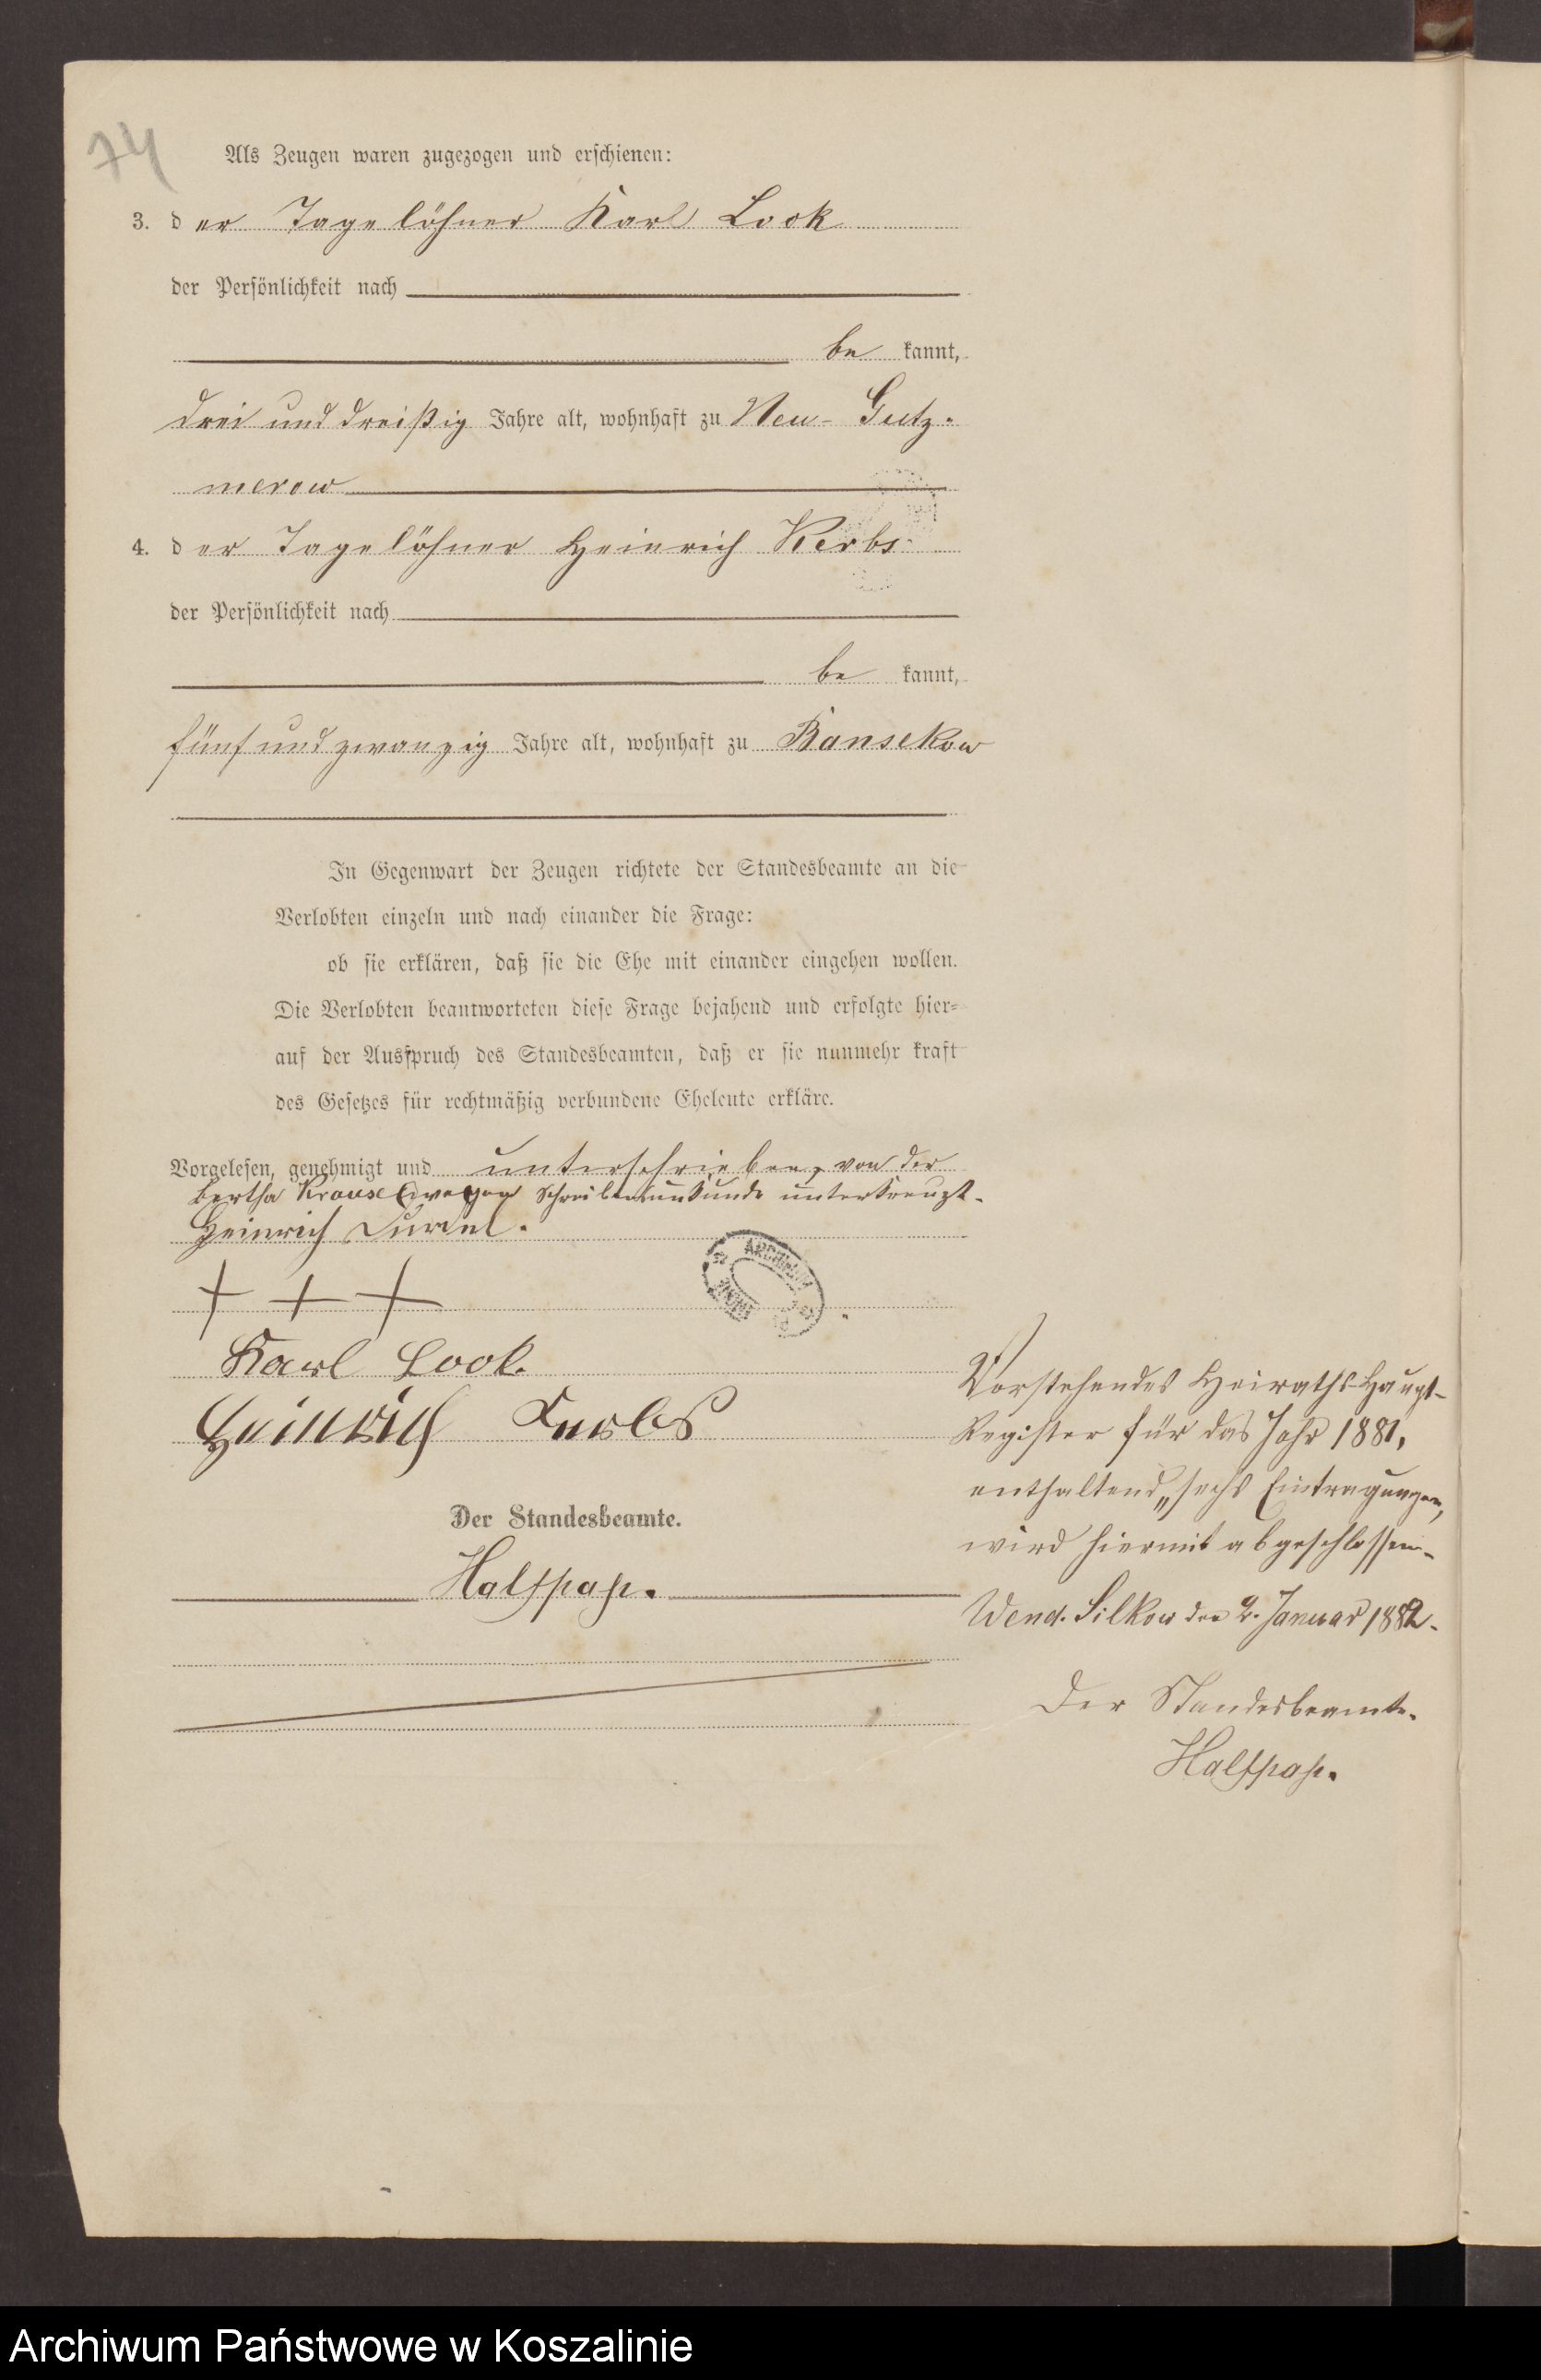 74
Als Zeugen waren zugezogen und erschienen:
3. der Tagelöhner Karl Look
der Persönlichkeit nach
be kannt,
drei und dreißig Jahre alt, wohnhaft zu Neu-Gutz-
merow
4. der Tagelöhner Heinrich Kerbs
der Persönlichkeit nach
be kannt,
fünf und zwanzig Jahre alt, wohnhaft zu Bansekow
In Gegenwart der Zeugen richtete der Standesbeamte an die
Verlobten einzeln und nach einander die Frage:
ob sie erklären, daß sie die Ehe mit einander eingehen wollen.
Die Verlobten beantworteten diese Frage bejahend und erfolgte hier-
auf der Ausspruch des Standesbeamten, daß er sie nunmehr kraft
des Gesetzes für rechtmäßig verbundene Eheleute erkläre.
Vorgelesen, genehmigt und unterschrieben, von der
Bertha Krause wegen Schreibensunkunde unterkreuzt.
Heinrich
+ + +
Karl Look
Heinrich Kerbs
Der Standesbeamte.
Halfpap.
Vorstehendes Heiraths-Haupt-
Register für das Jahr 1881,
enthaltend „sechs Eintragungen,
wird hiermit abgeschlossen.
Wend. Silkow den 2. Januar 1882.
Der Standesbeamte.
Halfpap.
Archiwum Państwowe w Koszalinie